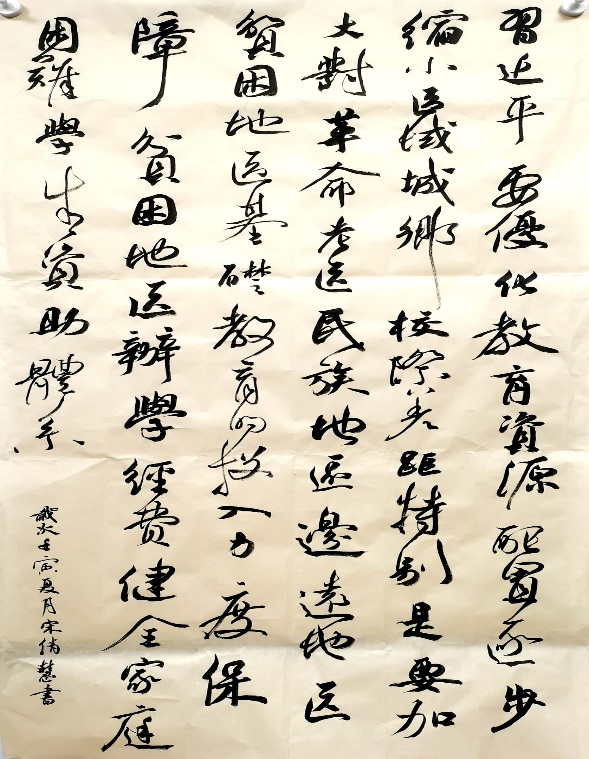 習近平要優化教育資源配置逐步
縮小區域城鄉校際差距特别是要加
大對革命老區民族地區邊遠地區
貧困地區基礎教育的投入力度保
障貧困地區辦學經費健全家庭
困難學生資助體系
歲次壬寅夏月宋倩慧書